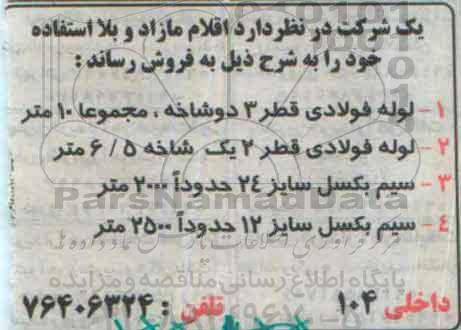 یک شرکت در نظردارد اقلام مازاد و بلا استفاده
خود را به شرح ذیل به فروش رساند :
۱ - لوله فولادی قطر ۳ دوشاخه ، مجموعا ۱۰ متر
۲ - لوله فولادی قطر ۲ یک شاخه ۵ / ۶ متر
۳ - سیم بکسل سایز ۲٤ حدوداً ۲۰۰۰ متر
٤ - سیم بکسل سایز ۱۲ حدوداً ۲۵۰۰ متر
ParsNamadData
پایگاه اطلاع رسانی مناقصه و مزایده
تلفن : ۷۶۴۰۶۳۲۴ داخلی ۱۰۴